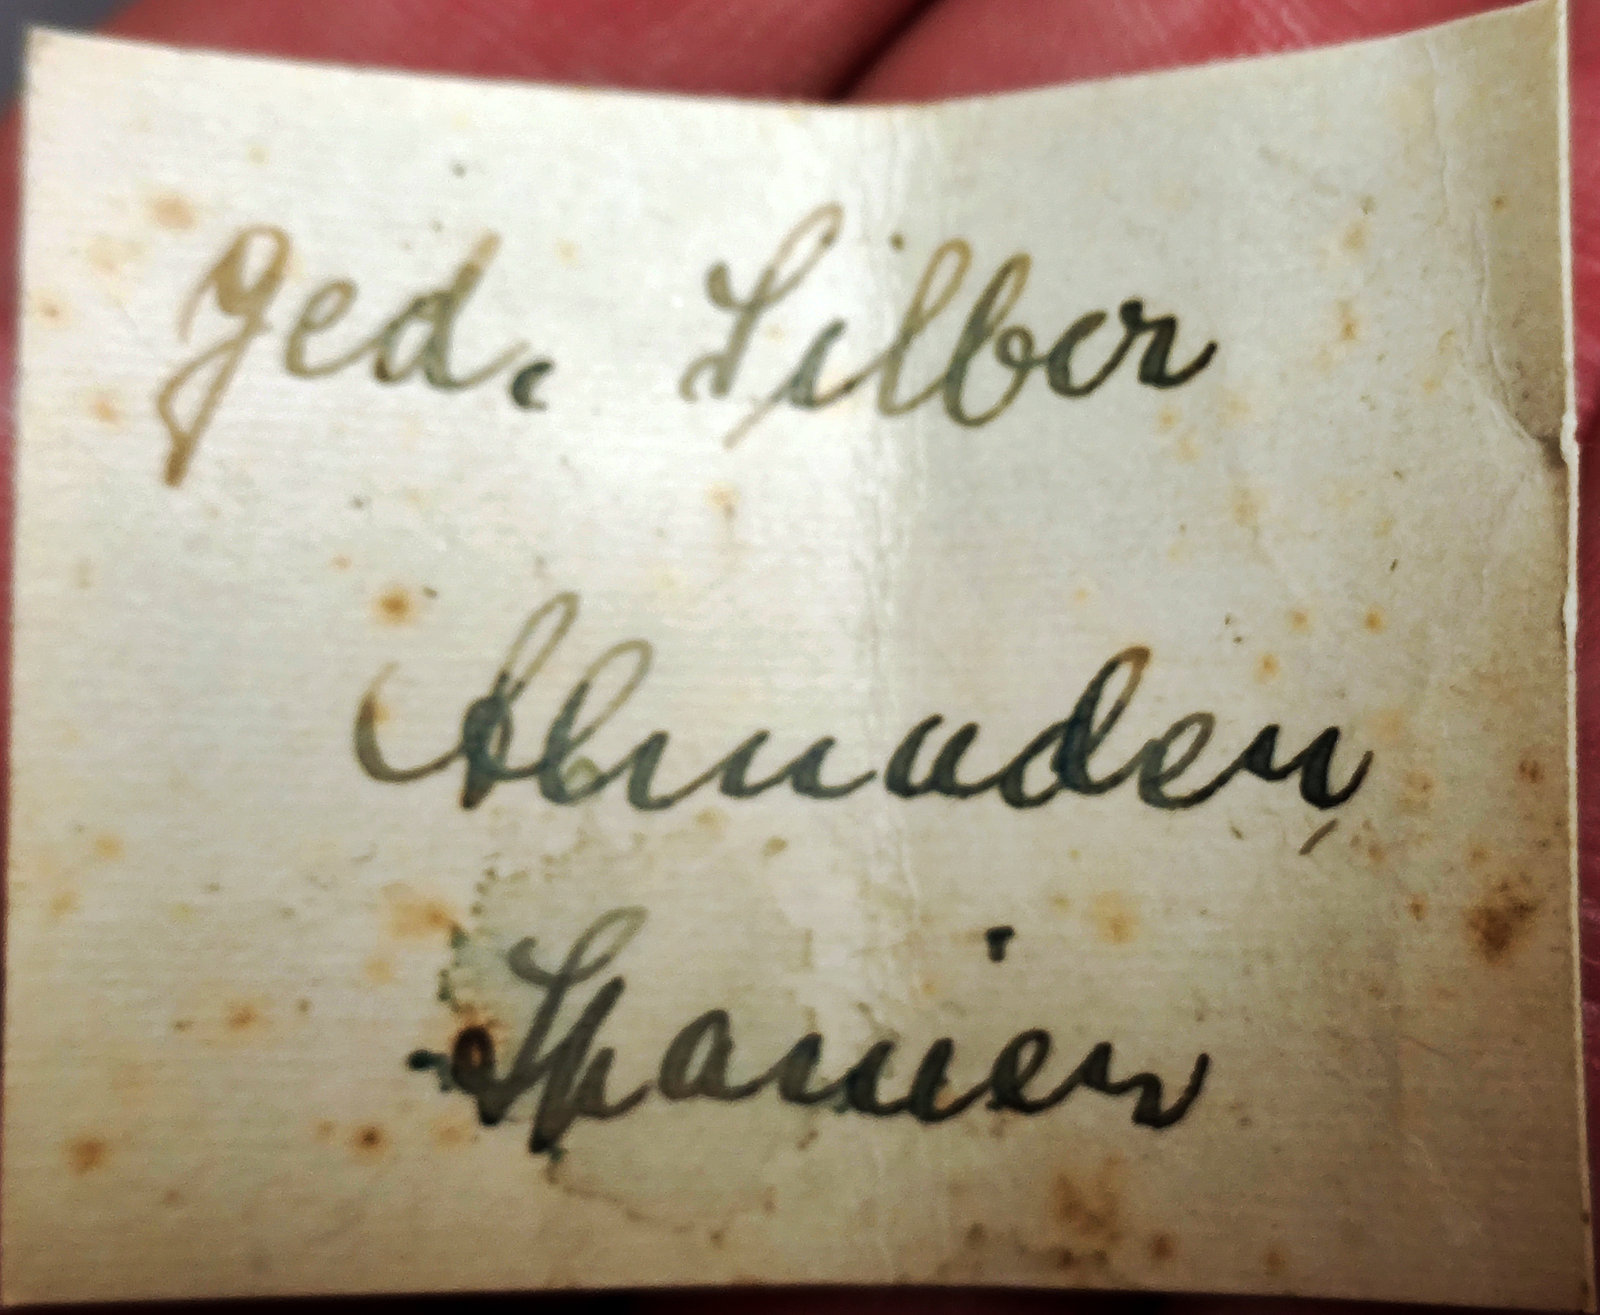 ged. Silber
Almaden,
Spanien